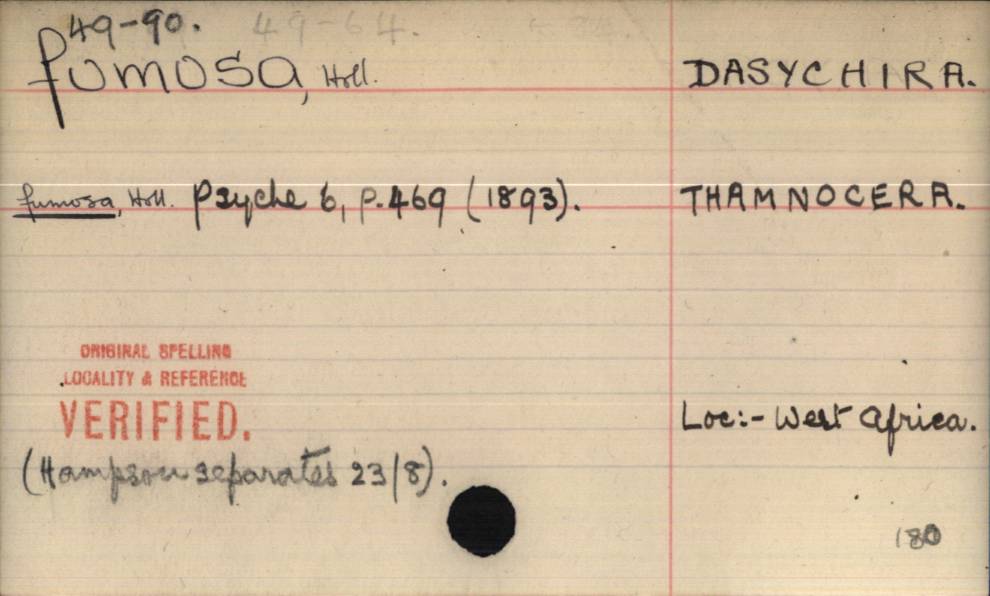 49-90. 49-64.
fumosa, Holl. DASYCHIRA.
fumosa, Holl. Psyche 6, p. 469 (1893). THAMNOCERA.
ORIGINAL SPELLING
LOCALITY & REFERENCE
VERIFIED.
Loc:- West Africa.
(Hampson separates 23/8).
180